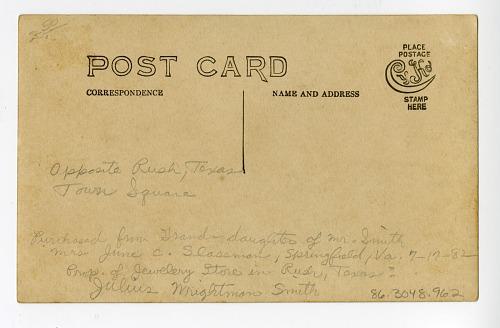 POST CARD
CORRESPONDENCE
NAME AND ADDRESS
PLACE
POSTAGE
STAMP
HERE
Opposite Rusk, Texas
Town Square
Purchased from Grand-daughter of Mr. Smith
Mrs. June C. Slassman, Springfield, Va. 7-17-82
Prop. of Jewelery Store in Rusk, Texas
Julius Wrightman Smith
86.3048.962